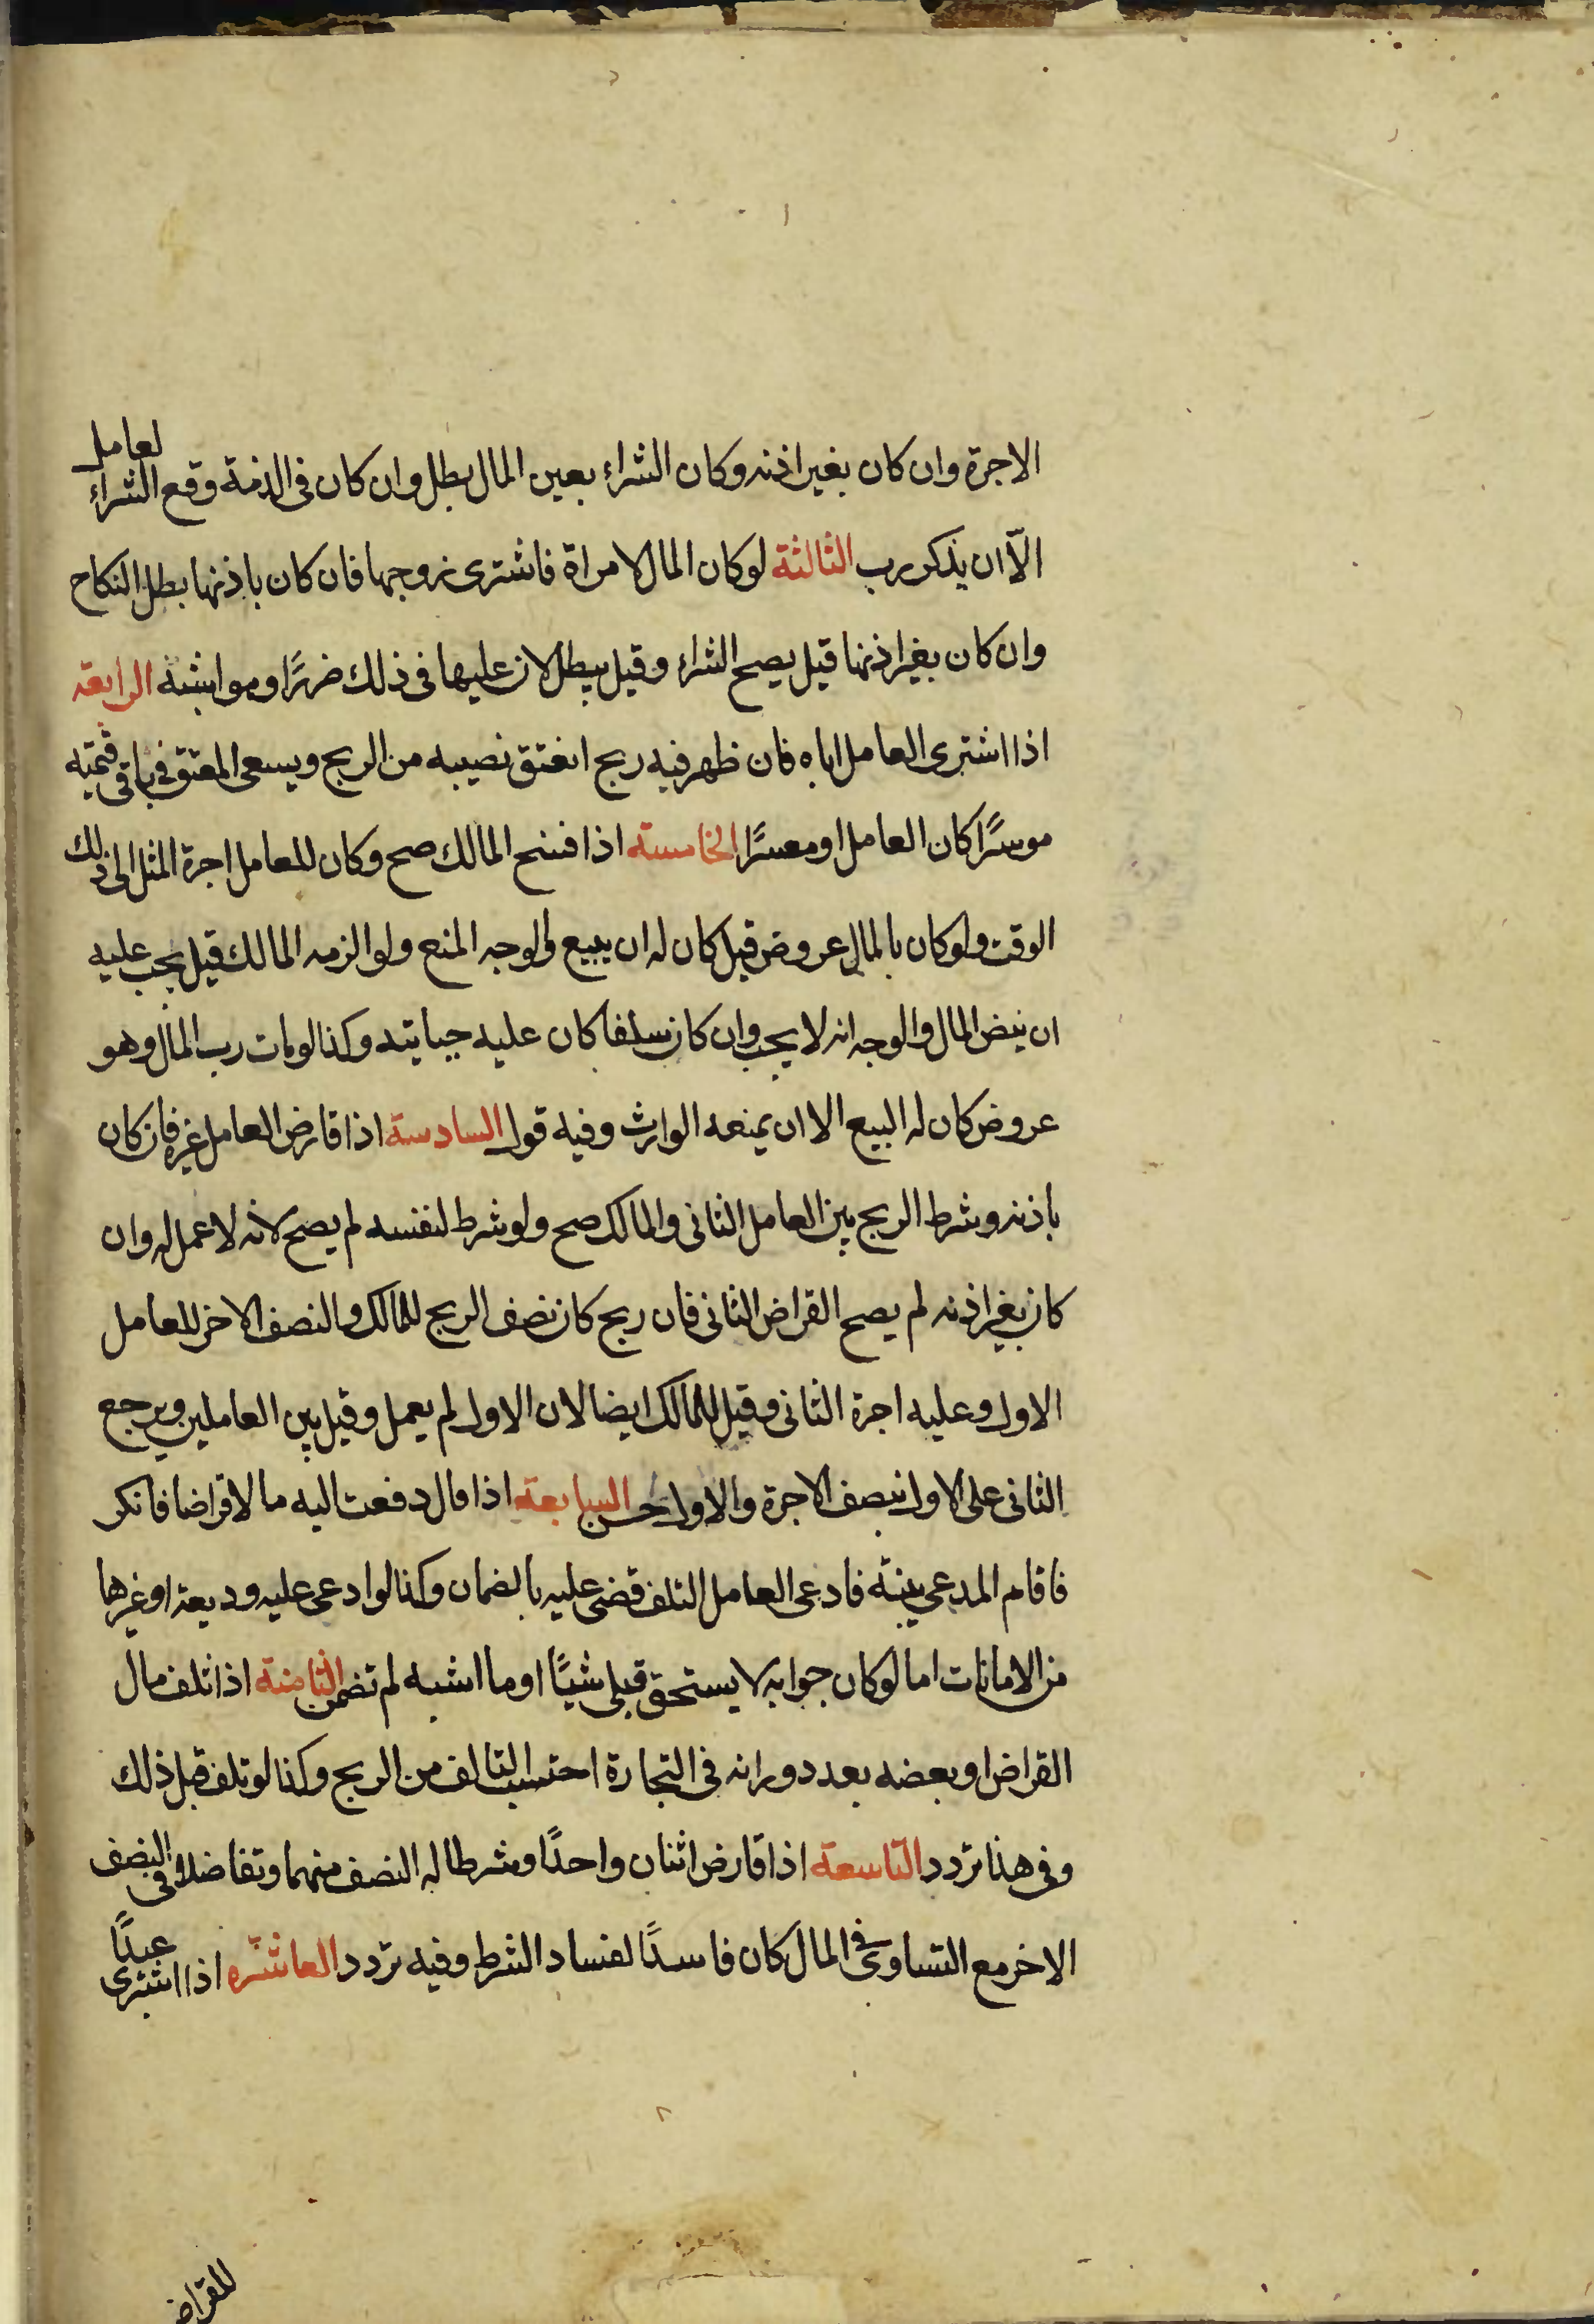 الاجرة وان كان بغير اذنه وكان الشراء بعين المال بطل وان كان فى الذمة وقع الشراء لعامل
الّا ان يذكر رب الثالثة لو كان المال لامراة فاشترى زوجها فان كان باذنها بطل النكاح
وان كان بغير اذنها قيل يصح الشراء وقيل يبطل لان عليها فى ذلك ضررًا وهو اشبه الرابعة
اذا اشترى العامل اباه فان ظهر فيه ربح انعتق نصيبه من الربح ويسعى المعتق فى باقى قيمته
موسرًا كان العامل او معسرًا الخامسة اذا فسخ المالك صح وكان للعامل اجرة المثل الى ذلك
الوقت ولو كان بالمال عروض قيل كان له ان يبيع والوجه المنع ولو الزمه المالك قيل يجب عليه
ان ينض المال والوجه انه لا يجب وان كان سلفا كان عليه جبايته وكذا لو مات رب المال وهو
عروض كان له البيع الا ان يمنعه الوارث وفيه قول السادسة اذا قارض العامل غيره فان كان
باذنه وشرط الربح بين العامل الثانى والمالك صح ولو شرط لنفسه لم يصح لانه لا عمل له وان
كان بغير اذنه لم يصح القراض الثانى فان ربح كان نصف الربح للمالك والنصف الاخر للعامل
الاول وعليه اجرة الثانى وقيل للمالك ايضا لان الاول لم يعمل وقيل بين العاملين ويرجع
الثانى على الاول بنصف الاجرة والاول حسن السابعة اذا قال دفعت اليه مالا قراضا فانكر
فاقام المدعى بينة فادعى العامل التلف قضى عليه بالضمان وكذا لو ادعى عليه وديعة او غيرها
من الامانات اما لو كان جوابه لا يستحق قبلى شيًا او ما اشبه لم تضمن الثامنة اذا تلف مال
القراض او بعضه بعد دورانه فى التجارة احتسب التالف من الربح وكذا لو تلف قبل ذلك
وفى هذا تردد التاسعة اذا قارض اثنان واحدًا وشرطا له النصف منهما وتفاضلا فى النصف
الاخر مع التساوى فى المال كان فاسدًا لفساد الشرط وفيه تردد العاشرة اذا اشترى عبدًا
للقراض